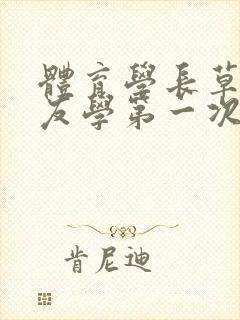 體育學長草
友學第一次
肯尼迪